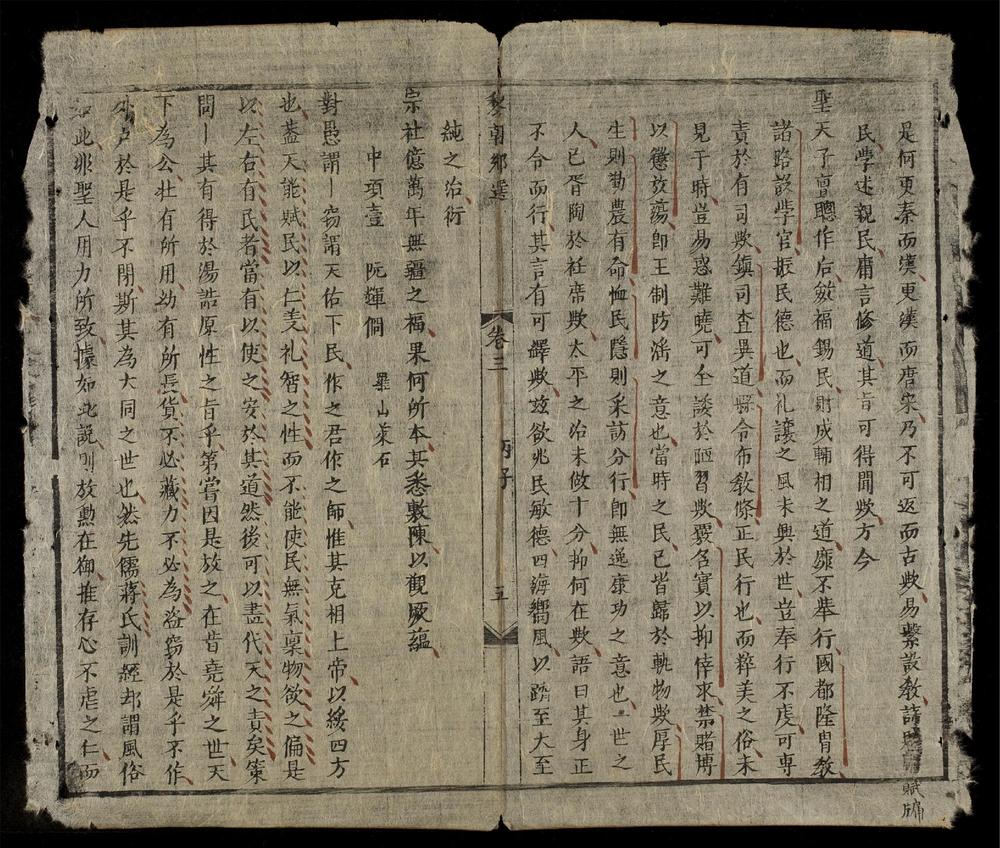 是何更秦而漢更漢而唐宋乃不可返而古歟易繫設教請
民學述親民庸言修道其旨可得聞歟方今
聖天子亶聰作后斂福錫民財成輔相之道靡不舉行國都隆胄教
諸路設學官振民德也而礼讓之風未興於世豈奉行不虔可專
責於有司歟鎮司查異道縣令布教條正民行也而粹美之俗未
見于時豈易惑難曉可全諉於陋習歟覈名實以抑倖求禁賭博
以懲放蕩即王制防淫之意也當時之民已皆歸於軌物歟厚民
生則勸農有命恤民隱則采訪分行即無逸康功之意也世之
人已胥陶於衽席歟太平之治未做十分抑何在歟語曰其身正
不令而行其言有可繹歟玆欲兆民敏德四海嚮風以躋至大至
黎朝鄉選 卷三 丙子 五
純之治衍
宗社億萬年無疆之福果何所本其悉敷陳以觀厥蘊
中項壹 阮輝僩 羅山萊石
對愚謂丨窃謂天佑下民作之君作之師惟其克相上帝以綏四方
也盖天能賦民以仁義礼智之性而不能使民無氣稟物欲之偏是
以左右有民者當有以使之安於其道然後可以盡代天之責矣策
問丨其有得於湯誥原性之旨乎第嘗因是放之在昔堯舜之世天
下為公壯有所用幼有所長貨不必藏力不必為盜窃於是乎不作
外户於是乎不閉斯其為大同之世也然先儒蔣氏訓經却謂風俗
如此非聖人用力所致據如此說則放勲在御推存心不虐之仁而